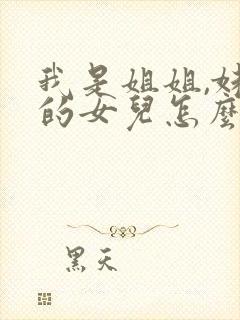 我是姐姐,妹
的女兒怎麼
黑天